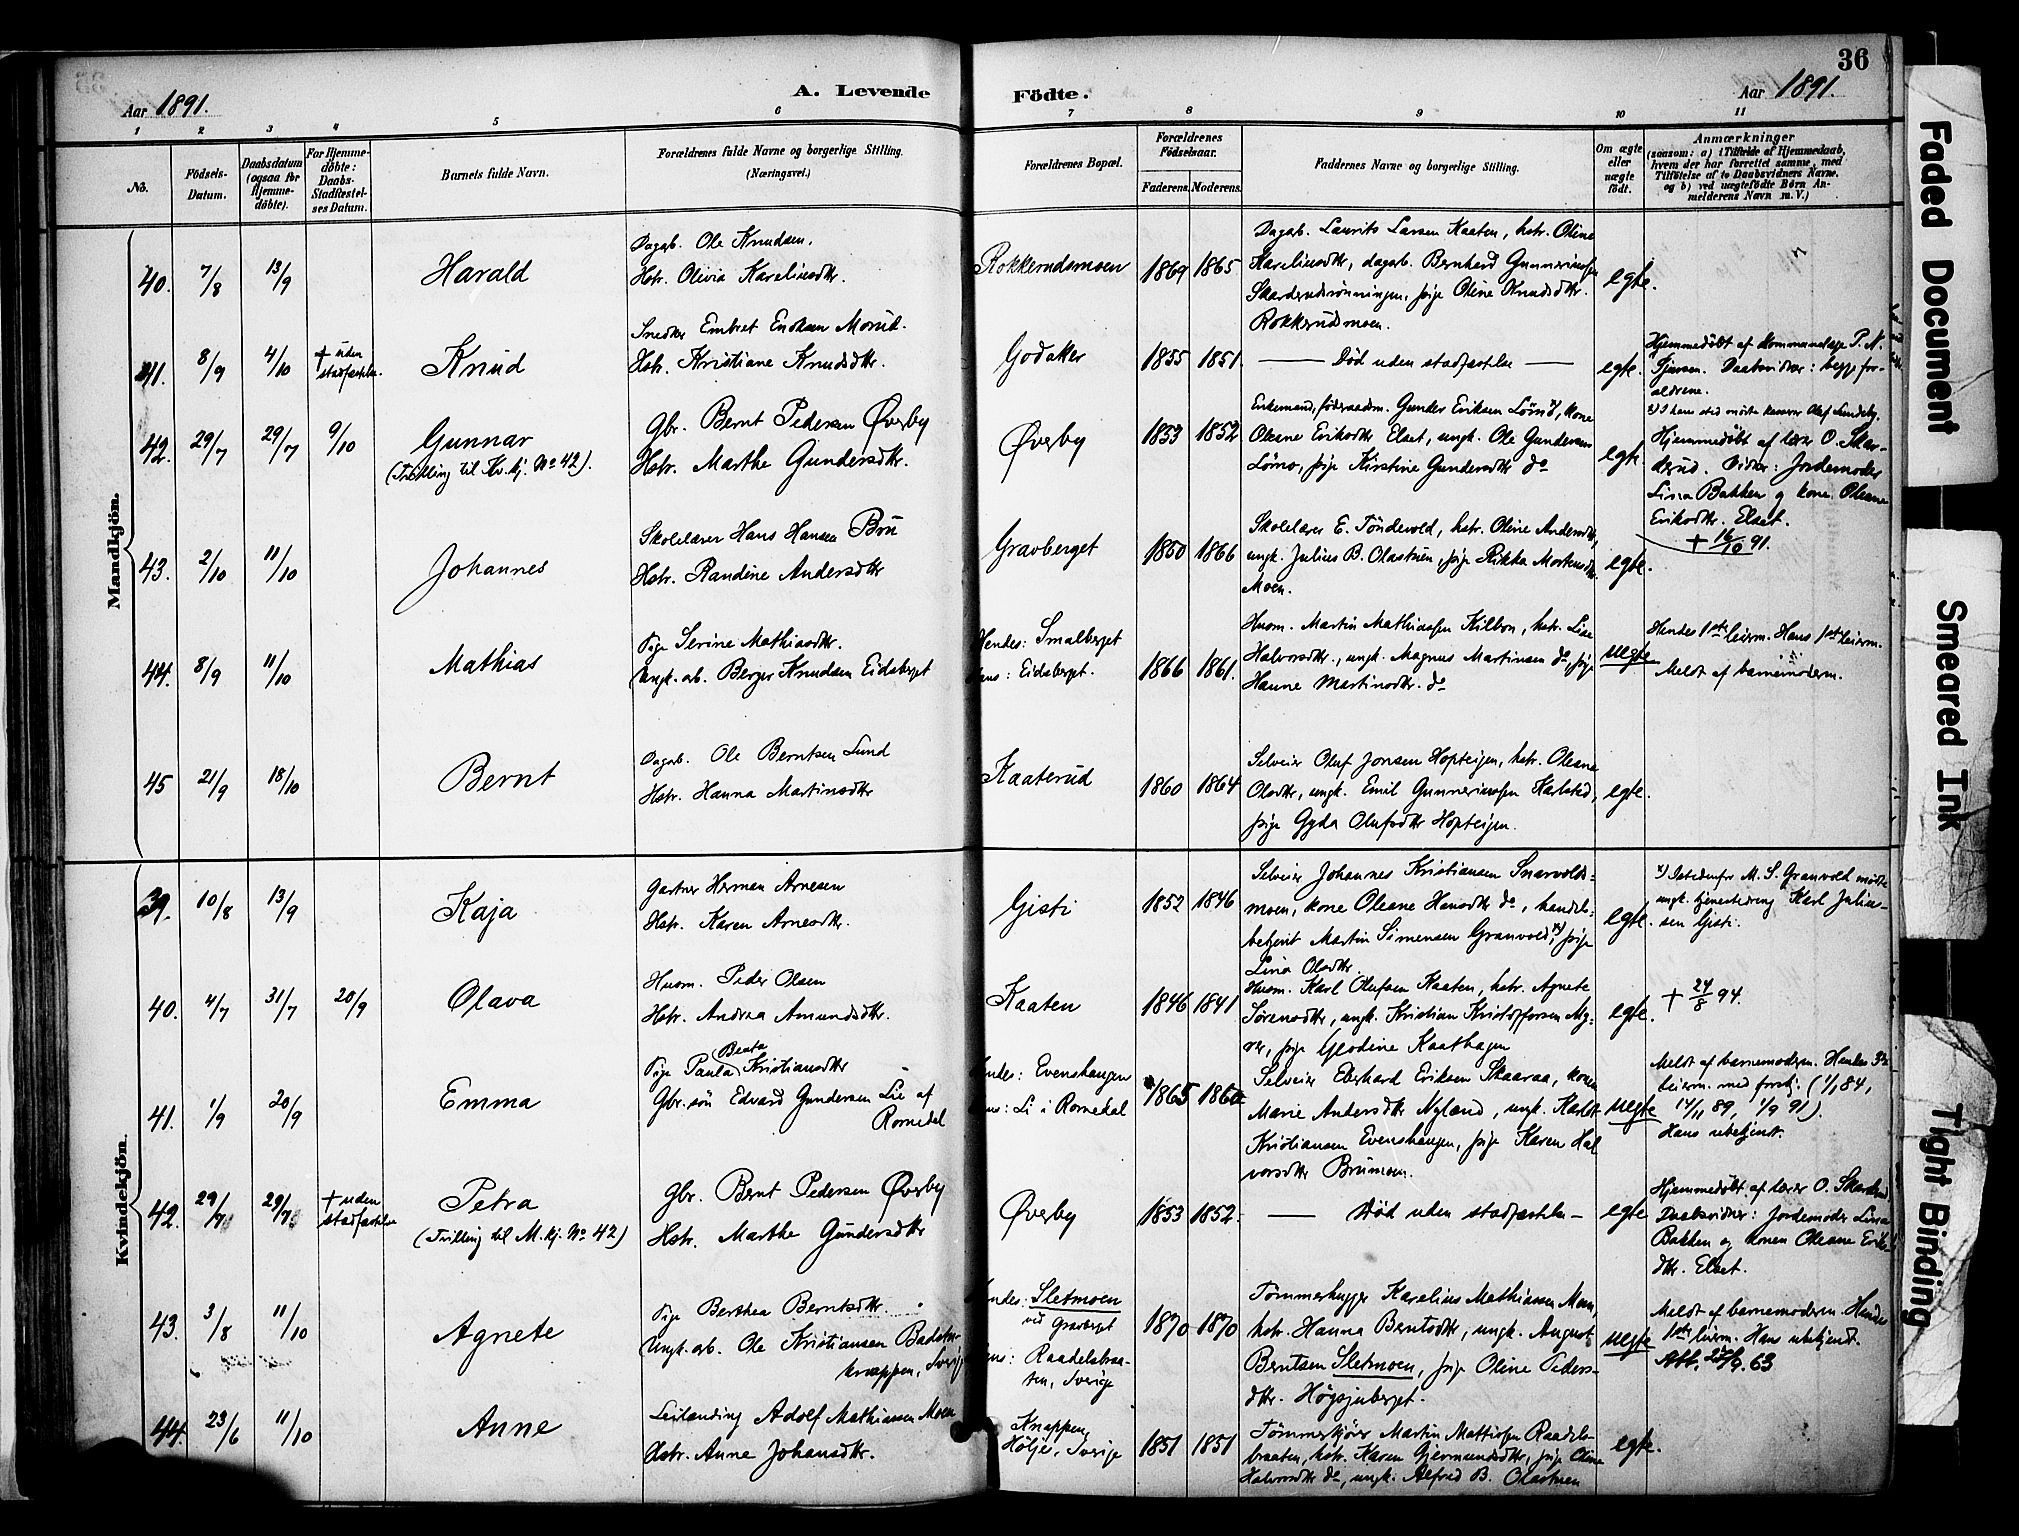 36
Aar 1891.
A. Levende Födte.
Aar 1891.
1 2 3 4 5 6 7 8 9 10 11
No.
Födsels-Datum.
Daabsdatum (ogsaa for Hjemmedöbte).
For Hjemmedöbte: Daabs-Stadfæstelses Datum.
Barnets fulde Navn.
Forældrenes fulde Navne og borgerlige Stilling. (Næringsvei.)
Forældrenes Bopæl.
Forældrenes Födselsaar.
Faderens. Moderens.
Faddernes Navne og borgerlige Stilling.
Om ægte eller uægte födt.
Anmærkninger
(saasom: a) i Tilfælde af Hjemmedaab, hvem der har forrettet samme, med Tilföielse af to Daabsvidners Navne, og b) ved uægtefödte Börn Anmelderens Navn m.V.)
Mandkjön.
40. 7/8 13/9
Harald
Dagarb. Ole Knudsen.
Hstr. Olivia Karelinsdtr.
Rokkerudsmoen 1869 1865
Dagarb. Laurits Larsen Kaaten, hstr. Oline
Karelinsdtr, dagarb. Bernhard Gunneriussen
Skarderudsrönningen, pige Oline Knudsdtr.
Rokkerudsmoen.
egte.
41. 8/9 4/10 + uden stadfæstelse.
Knud
Snedker Embret Enoksen Morud.
Hstr. Kristiane Knudsdtr.
Godaker 1855 1851.
Död uden stadfæstelse
egte.
Hjemmedöbt af
P. N.
Daabsvidner: begge forældrene.
42. 29/7 29/7 9/10
Gunnar
(Trilling til Kv.kj. No 42).
Gbr. Bernt Pedersen Øverby
Hstr. Marthe Gundersdtr.
Øverby 1853 1852
Enkemand, föderaadsm. Gunder Eriksen Lömo x), kone
Oleane Eriksdtr Elset, ungk. Ole Gundersen
Lömo, pige Kirstine Gundersdtr do
egte.
x) I hans sted mötte Olef Lundeby.
Hjemmedöbt af lærer O. Skarderud.
Vidner: Jordemoder
Lina Bakken og kone Oleane
Eriksdtr. Elset.
+ 16/10 91.
43. 2/10 11/10
Johannes
Skolelærer Hans Hansen Bru
Hstr. Randine Andersdtr
Gravberget 1860 1866
Skolelærer E. Töndevold, hstr. Oline Andersdtr,
ungk. Julius B. Olastuen, pige Rikka Mortensdtr.
Moen.
egte.
44. 8/9 11/10
Mathias
Pige Serine Mathiasdtr.
Ungk. arb. Berger Knudsen Eidsberget
Hendes: Smalberget
Hans: Eidsberget. 1866 1861.
Husm. Martin Mathiassen Kilbon, hstr. Lise
Halvorsdtr., ungk. Magnus Martinsen do, pige
Hanne Martinsdtr. do
uegte
Hendes 1ste leierm. Hans 1ste leierm.
Meldt af barnemoderen.
45 21/9 18/10
Bernt
Dagarb. Ole Berntsen Lund
Hstr. Hanna Martinsdtr
Kaaterud 1860 1864
Selveier Oluf Jonsen Hopteigen, hstr. Oleane
Olsdtr, ungk. Emil Gunneriussen Karlstad,
pige Gyda Olufsdtr Hopteigen.
egte.
Kvindekjön.
39. 10/8 13/9
Kaja
Gartner Herman Arnesen
Hstr. Karen Arnesdtr.
Gisti 1852 1846
Selveier Johannes Kristiansen Snarvoldsmoen,
kone Oleane Hansdtr do, handelsbetjent
Martin Simensen Granvold x), pige
Lina Olsdtr.
egte.
x) Istedenfor M. S. Granvold mötte
ungk. tjenestedreng Karl Juliussen
Gisti.
40. 4/7 31/7 20/9
Olava
Husm. Peder Olsen
Hstr. Andrea Amundsdtr.
Kaaten 1846 1841
Husm. Karl Olufsen Kaaten, hstr. Agnete
Sörensdtr, ungk. Kristian Kristoffersen Myrer,
pige Glodine Kaathagen
egte.
+ 24/8 94.
41. 1/9 20/9
Emma
Pige Paula (Beata) Kristiansdtr
Gbr. sön Edvard Gundersen Lie af
Romedal
Hendes: Evenshaugen
Hans: Li i Romedal 1865 1860
Selveier Eberhard Eriksen Skaaraa, konen
Marie Andersdtr Nyland, ungk. Karl
Kristiansen Evenshaugen, pige Karen Halvorsdtr
Brumoen.
uegte
Meldt af barnemoderen. Hendes 3die
leierm. med forskj. (1/1 84,
14/11 89, 1/9 91).
Hans ubekjendt.
42. 29/7 29/7 + uden stadfæstelse
Petra
(Trilling til M.kj. No 42)
Gbr. Bernt Pedersen Øverby
Hstr. Marthe Gundersdtr
Øverby 1853 1852.
Död uden stadfæstelse
egte
Hjemmedöbt af lærer O. Skarderud
Daabsvidner: Jordemoder Lina
Bakken og konen Oleane Eriksdtr.
Elset.
43. 3/8 11/10
Agnete
Pige Berthea Berntsdtr.
Ungk. arb. Ole Kristiansen
knappen, Sverige
Hendes: Sletmoen
ved Gravberget
Hans: Raadelsbraaten, Sverige
1870 1870
Tömmerhugger Karelius Mathiassen Moen,
hstr. Hanna Berntsdtr, ungk. August
Berntsen Sletmoen, pige Oline Pedersdtr.
Högsjuberget.
uegte
Meldt af barnemoderen. Hendes
1ste leierm. Hans ubekjendt.
Att. 63
44. 23/6 11/10
Anne
Leilending Adolf Mathiassen Moen
Hstr. Anne Johansdtr.
Knappen,
Höljes, Sverige 1851 1851
Tömmerkjörer Martin Mattissen Raadelsbraaten,
hstr. Karen Gjermundsdtr, pige Oline
Halvorsdtr do, ungk. Alfred B. Olastuen
egte.
Faded Document
Smeared Ink
Tight Binding